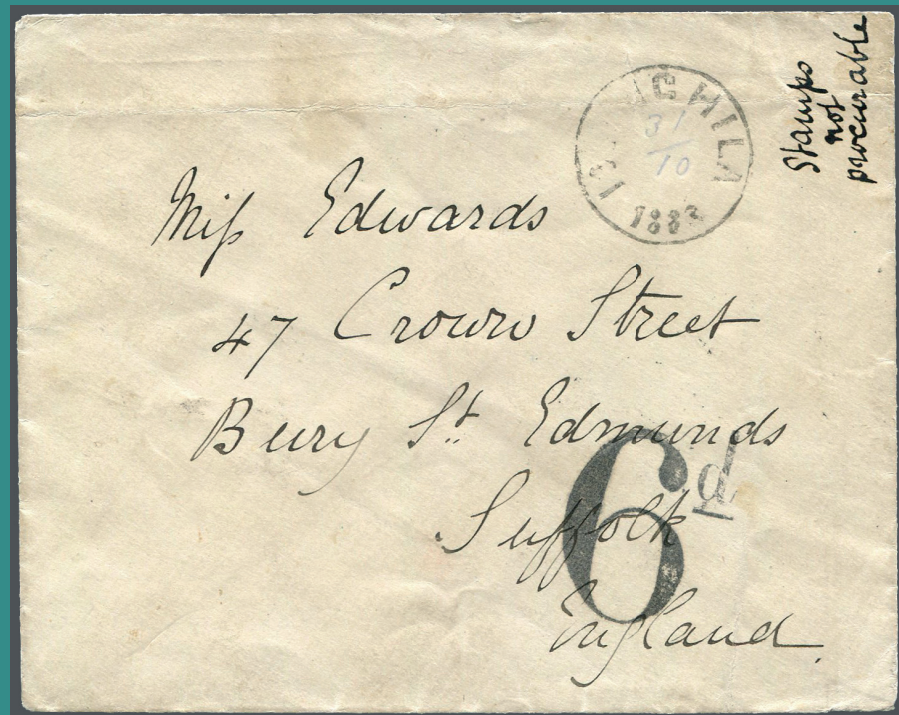 Stamps
not
procurable
31
10
Miss Edwards
47 Crown Street
Bury St. Edmunds
Suffolk
England.
6d